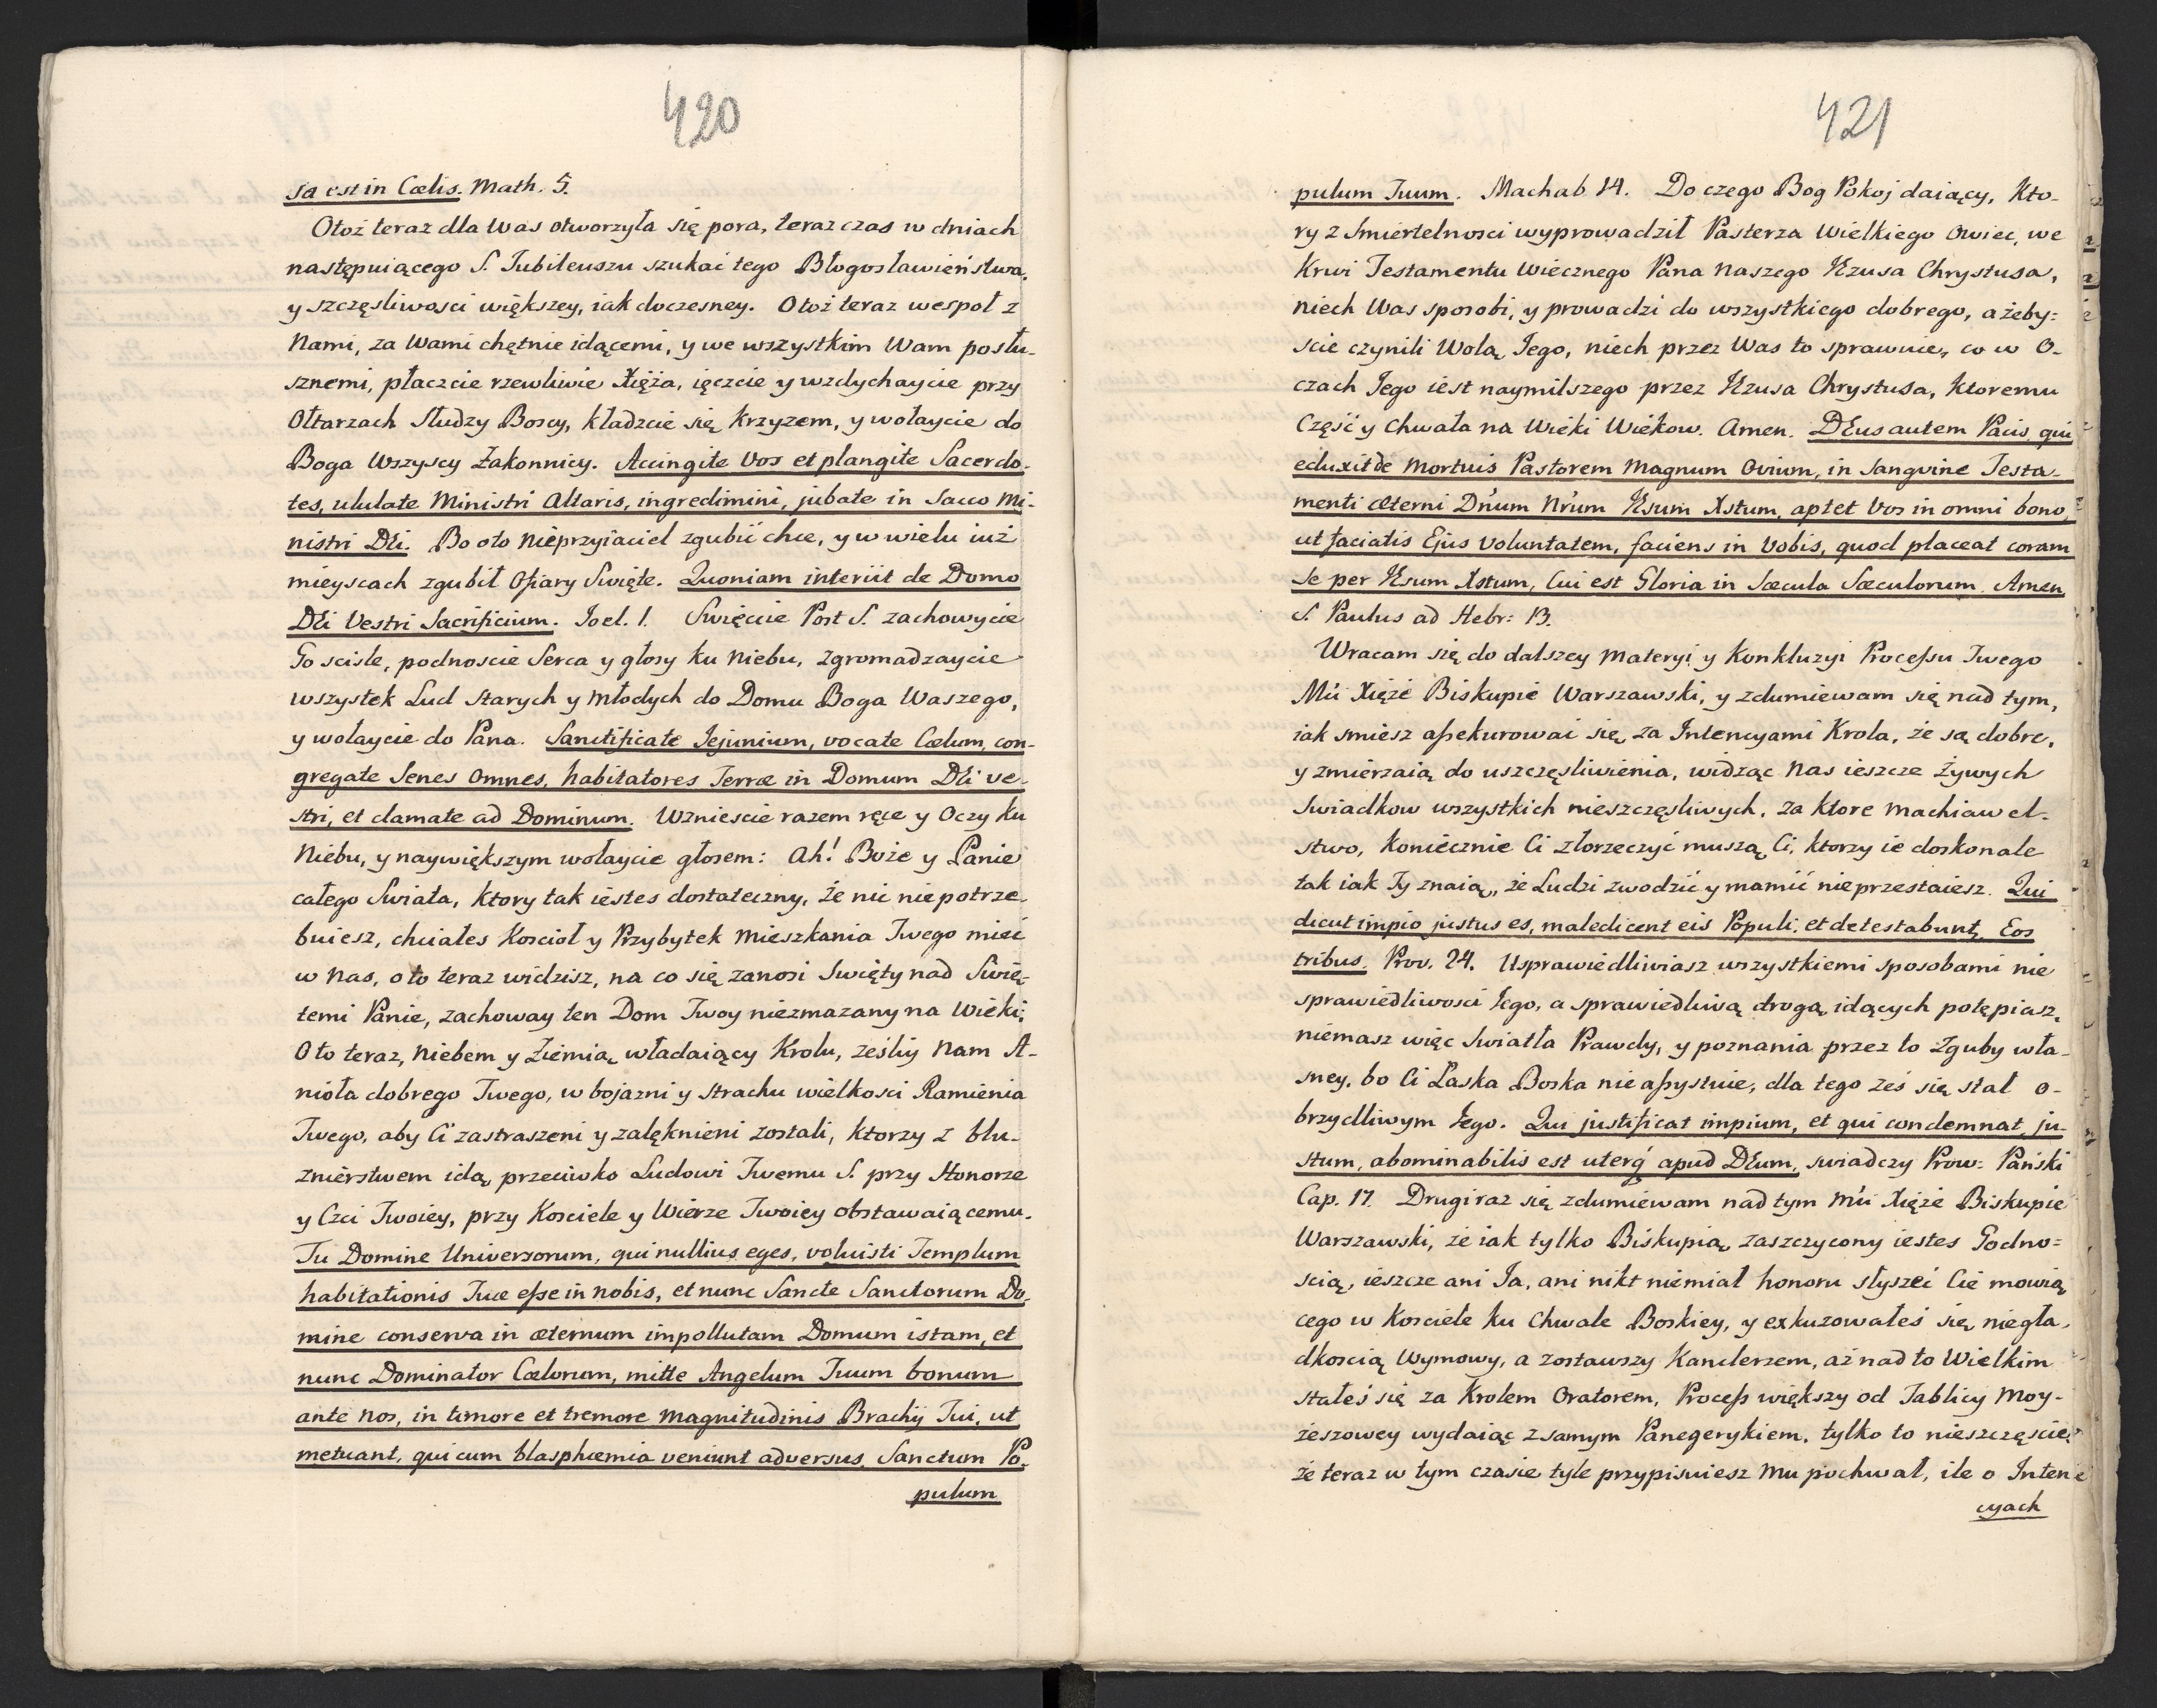 420
sa est in Cœlis. Math. 5.
Otoż teraz dla Was otworzyła się pora, teraz czas w dniach
następuiącego S. Jubileuszu szukać tego Błogosławieństwa,
y szczęsliwosci większey, iak doczesney. Otoż teraz wespoł z
Nami, za Wami chętnie idącemi, y we wszystkim Wam posłu-
sznemi, płaczcie rzewliwie Xięża, ięczcie y wzdychaycie przy
Ołtarzach Słudzy Boscy, kładzcie się Krzyzem, y wołaycie do
Boga Wszyscy Zakonnicy. Accingite Vos et plangite Sacerdo-
tes, ululate Ministri Altaris, ingredimini, jubate in Sacco Mi-
nistri DEi. Bo oto Nieprzyiaciel zgubić chce, y w wielu iuż
mieyscach zgubił Ofiary Swięte. Quoniam interiit de Domo
DEi Vestri Sacrificium. Joel. 1. Swięćcie Post S. zachowycie
Go scisle, podnoscie Serca y głosy ku Niebu, zgromadzaycie
wszystek Lud Starych y Młodych do Domu Boga Waszego,
y wołaycie do Pana. Sanctificate Jejunium, vocate Cœlum, con-
gregate Senes Omnes, habitatores Terræ in Domum DEi ve-
stri, et clamate ad Dominum. Wzniescie razem ręce y Oczy ku
Niebu, y naywiększym wołaycie głosem: Ah! Boże y Panie
całego Swiata, Ktory tak iestes dostateczny, że nic niepotrze-
buiesz, chciałes Kosciół y Przybytek Mieszkania Twego mieć
w Nas, oto teraz widzisz, na co się zanosi Swięty nad Swię-
temi Panie, zachoway ten Dom Twoy niezmazany na Wieki;
Oto teraz, Niebem y Ziemią władaiący Krolu, ześliy Nam A-
nioła dobrego Twego, w bojazni y Strachu wielkosci Ramienia
Twego, aby Ci zastraszeni y zalęknieni zostali, Ktorzy z blu-
znierstwem idą przeciwko Ludowi Twemu S. przy Honorze
y Czci Twoiey, przy Kosciele y Wierze Twoiey obstawaiącemu.
Tu Domine Universorum, qui nullius eges, voluisti Templum
habitationis Tuæ eſse in nobis, et nunc Sancte Sanctorum Do-
mine conserva in æternum impollutam Domum istam, et
nunc Dominator Cœlorum, mitte Angelum Tuum bonum
ante nos, in timore et tremore Magnitudinis Brachij Tui, ut
metuant, qui cum blasphœmia veniunt adversus Sanctum Po-
pulum
421
pulum Tuum. Machab 14. Do czego Bog Pokoj daiący, Kto-
ry z Smiertelnosci wyprowadził Pasterza Wielkiego Owiec, we
Krwi Testamentu Wiecznego Pana Naszego JEzusa Chrystusa,
Niech Was sposobi, y prowadzi do wszystkiego dobrego, ażeby=
scie czynili Wolą Jego, niech przez Was to sprawuie, co w O-
czach Jego iest naymilszego przez JEzusa Chrystusa, Ktoremu
Część y Chwała na Wieki Wiekow. Amen. DEus autem Pacis, qui
eduxit de Mortuis Pastorem Magnum Ovium, in Sangvine Testa-
menti æterni Dn̄um Nr̄um JEsum Xstum, aptet Vos in omni bono,
ut faciatis Ejus Voluntatem, faciens in Vobis, quod placeat coram
Se per JEsum Xstum, Cui est Gloria in Sæcula Sæculorum. Amen
S. Paulus ad Hebr: 13.
Wracam się do dalszey Materyi y Konkluzyi Proceſsu Twego
Mći Xięże Biskupie Warszawski, y zdumiewam się nad tym,
iak smiesz aſsekurować się za Intencyami Krola, że są dobre,
y zmierzaią do uszczęsliwienia, widząc Nas ieszcze Żywych
Swiadkow wszystkich nieszczęsliwych, za Ktore Machiawel-
stwo, Koniecznie Ci złorzeczyć muszą Ci, Ktorzy ie doskonale
tak iak Ty znaią, że Ludzi zwodzić y mamić nieprzestaiesz. Qui
dicut impio justus es, maledicent eis Populi, et detestabunt Eos
tribus. Prov. 24. Usprawiedliwiasz wszystkiemi sposobami nie
sprawiedliwosci Jego, a sprawiedliwą drogą idących potępiasz,
niemasz więc Swiatła Prawdy, y poznania przez to Zguby wła-
sney, bo Ci Łaska Boska nie aſsystuie, dla tego żeś się stał o-
brzydliwym Jego. Qui justificat impium, et qui condemnat ju-
stum, abominabilis est uterq́ apud DEum, swiadczy Prow: Pański
Cap. 17. Drugi raz się zdumiewam nad tym Mći Xięże Biskupie
Warszawski, że iak tylko Biskupią zaszczycony iestes Godno=
scią, ieszcze ani Ja, ani nikt niemiał honoru słyszeć Cię mowią
cego w Kosciele ku Chwale Boskiey, y exkuzowałeś się niegła-
dkoscią Wymowy, a zostawszy Kanclerzem, aż nad to Wielkim
stałeś się za Krolem Oratorem, Proceſs większy od Tablicy Moy-
żeszowey wydaiąc z samym Panegerykiem, tylko to nieszczęscie,
że teraz w tym czasie tyle przypisuiesz Mu pochwał, ile o Inten
cyach